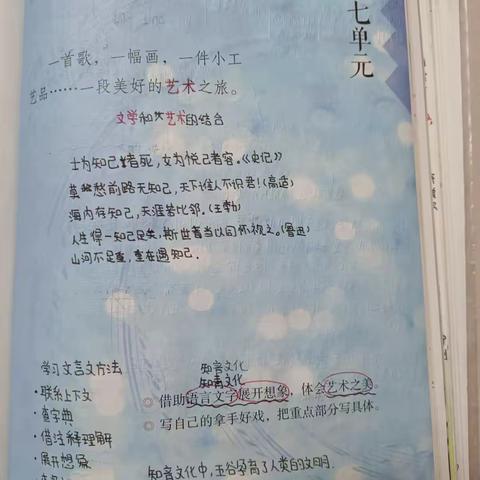 七单元
一首歌，一幅画，一件小工
艺品……一段美好的艺术之旅。
文学和艺术的结合
士为知己者死，女为悦己者容。《史记》
莫愁前路无知己，天下谁人不识君！(高适)
海内存知己，天涯若比邻。(王勃)
人生得一知己足矣，斯世当以同怀视之。(鲁迅)
山河不足重，重在遇知己．
学习文言文方法
·联系上下文
·查字典
·借注解理解
·展开想象
知音文化
知音文化
◎ 借助语言文字展开想象，体会艺术之美。
◎ 写自己的拿手好戏，把重点部分写具体。
知音文化中，五谷孕育了人类的文明．